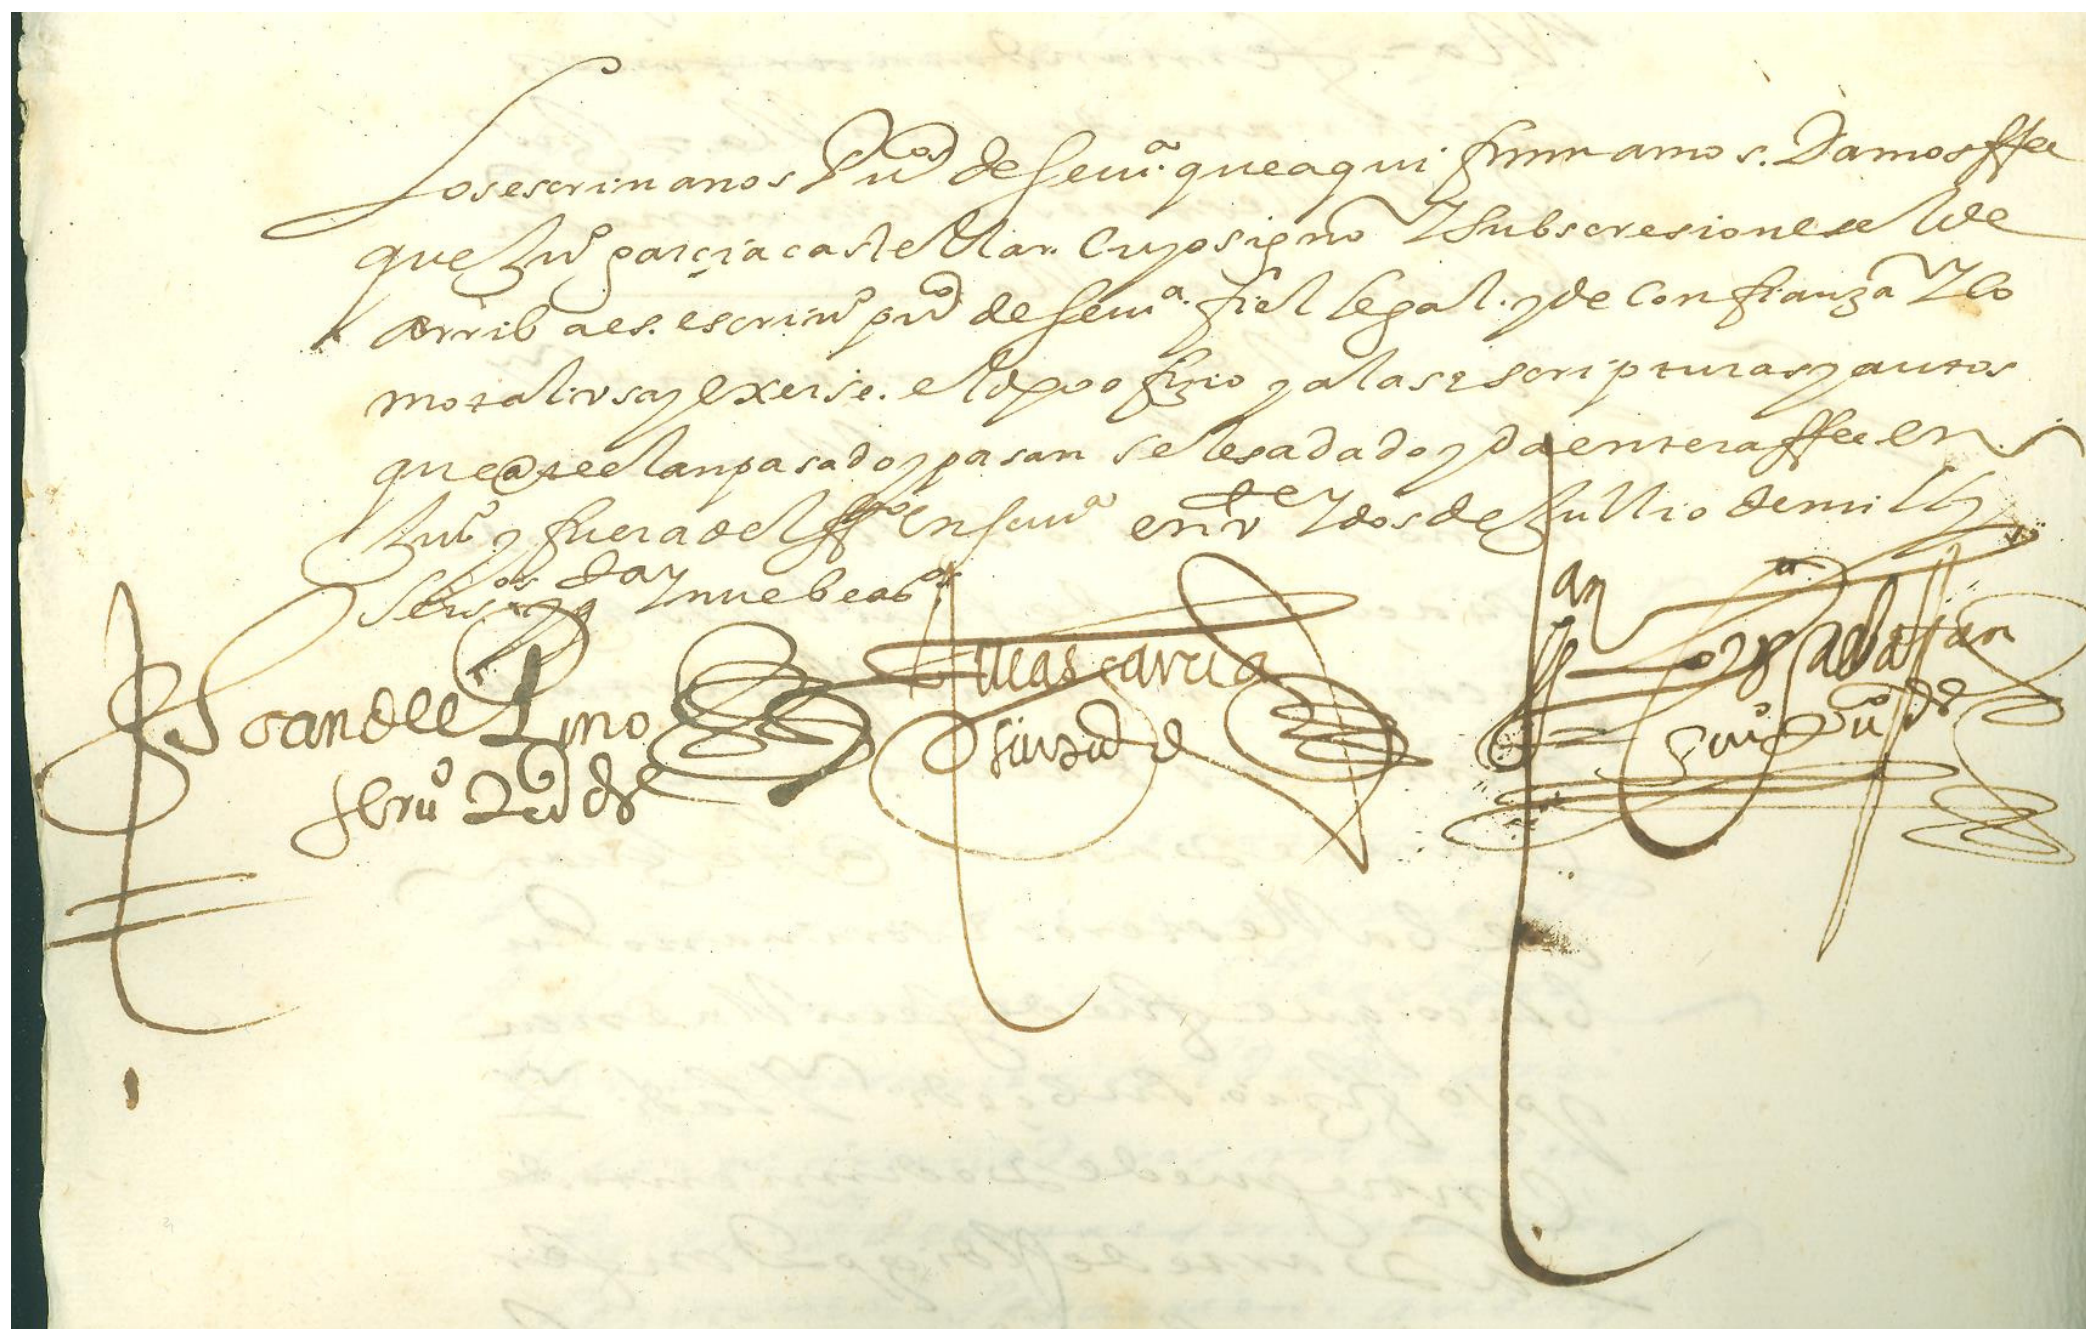 Los escriuanos Puᵒˢ de seuiª que aqui firmamos. Damos ffee
que Juº garçia castellar. Cuyo signo Y subscresion es el de
arriba es. escriuº puᶜᵒ de seuiª. fiel legal. y de Confianza Y Co
mo tal vsa y exerse. el dho ofizio y a las escripturas y autos
que ate el an pasado y pasan se les a dado y da entera ffee. en
Juiº y fuera del ffº en seuiª en vᵗᵉ Y dos de Jullio de mill y
seisᵒˢ y qᵗᵃ Y nuebe aº
Joan del Pino
scriuº puᶜᵒ de Sª
lucas garcia
scriuº puᶜᵒ de
scriuº puº de Sª